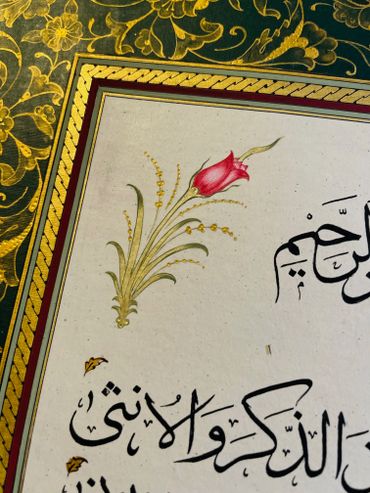 الرَّحيْمِ
الذَّكَرَ وَالْاُنْثٰى